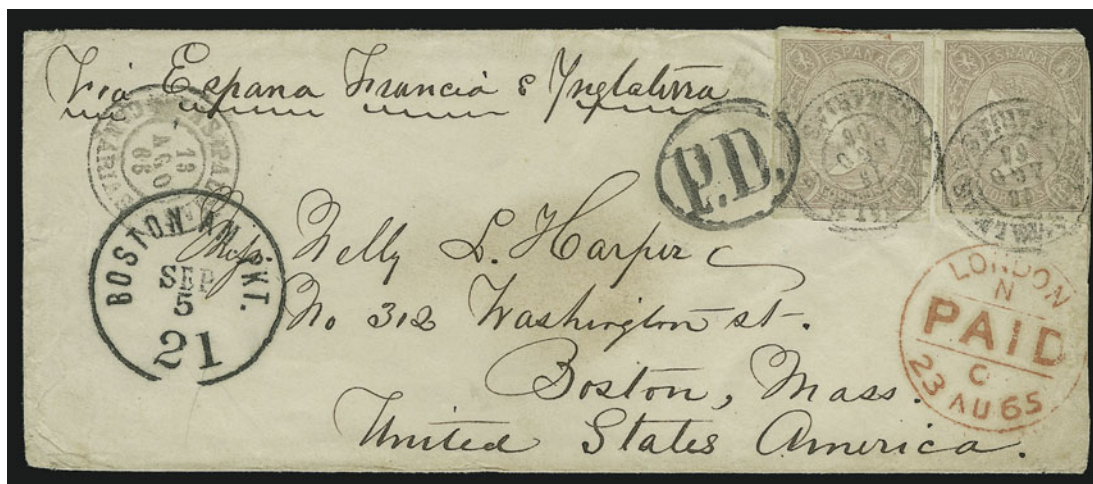 Via Espana Francia & Ynglaterra
ESPAÑA
ESPAÑA
P.D.
13
AGO
65
BOSTON AM. PKT.
SEP
5
21
Miss Nelly L. Harper
No 312 Washington st.
Boston, Mass.
United States America.
LONDON
N
PAID
C
23 AU 65